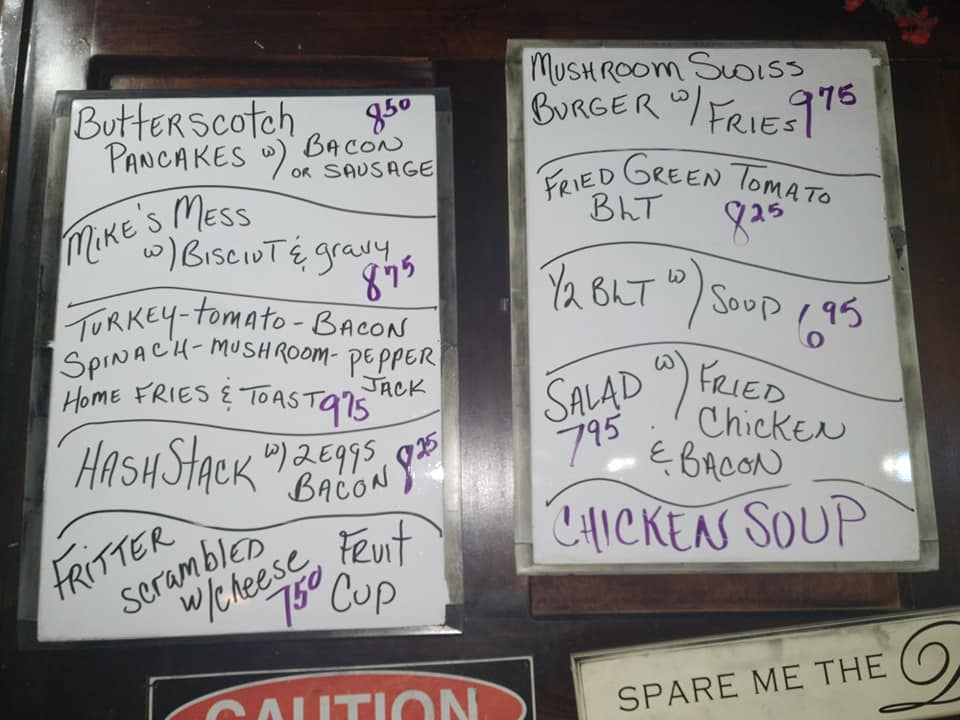 Butterscotch 8.50
PANCAKES w/ BACON
OR SAUSAGE
MIKE'S MESS
w/ BISCIUT & gravy
8.75
TURKEY-tomato-BACON
SPINACH-MUSHROOM-PEPPER
JACK
HOME FRIES & TOAST 9.75
HASH STACK w/ 2 EGGS
BACON 8.25
FRITTER
scrambled
w/cheese
7.50
FRUIT
CUP
MUSHROOM SWISS
BURGER w/ FRIES 9.75
FRIED GREEN TOMATO
BLT 8.25
1/2 BLT w/ SOUP 6.95
SALAD w/ FRIED
Chicken
7.95
& BACON
CHICKEN SOUP
CAUTION
SPARE ME THE